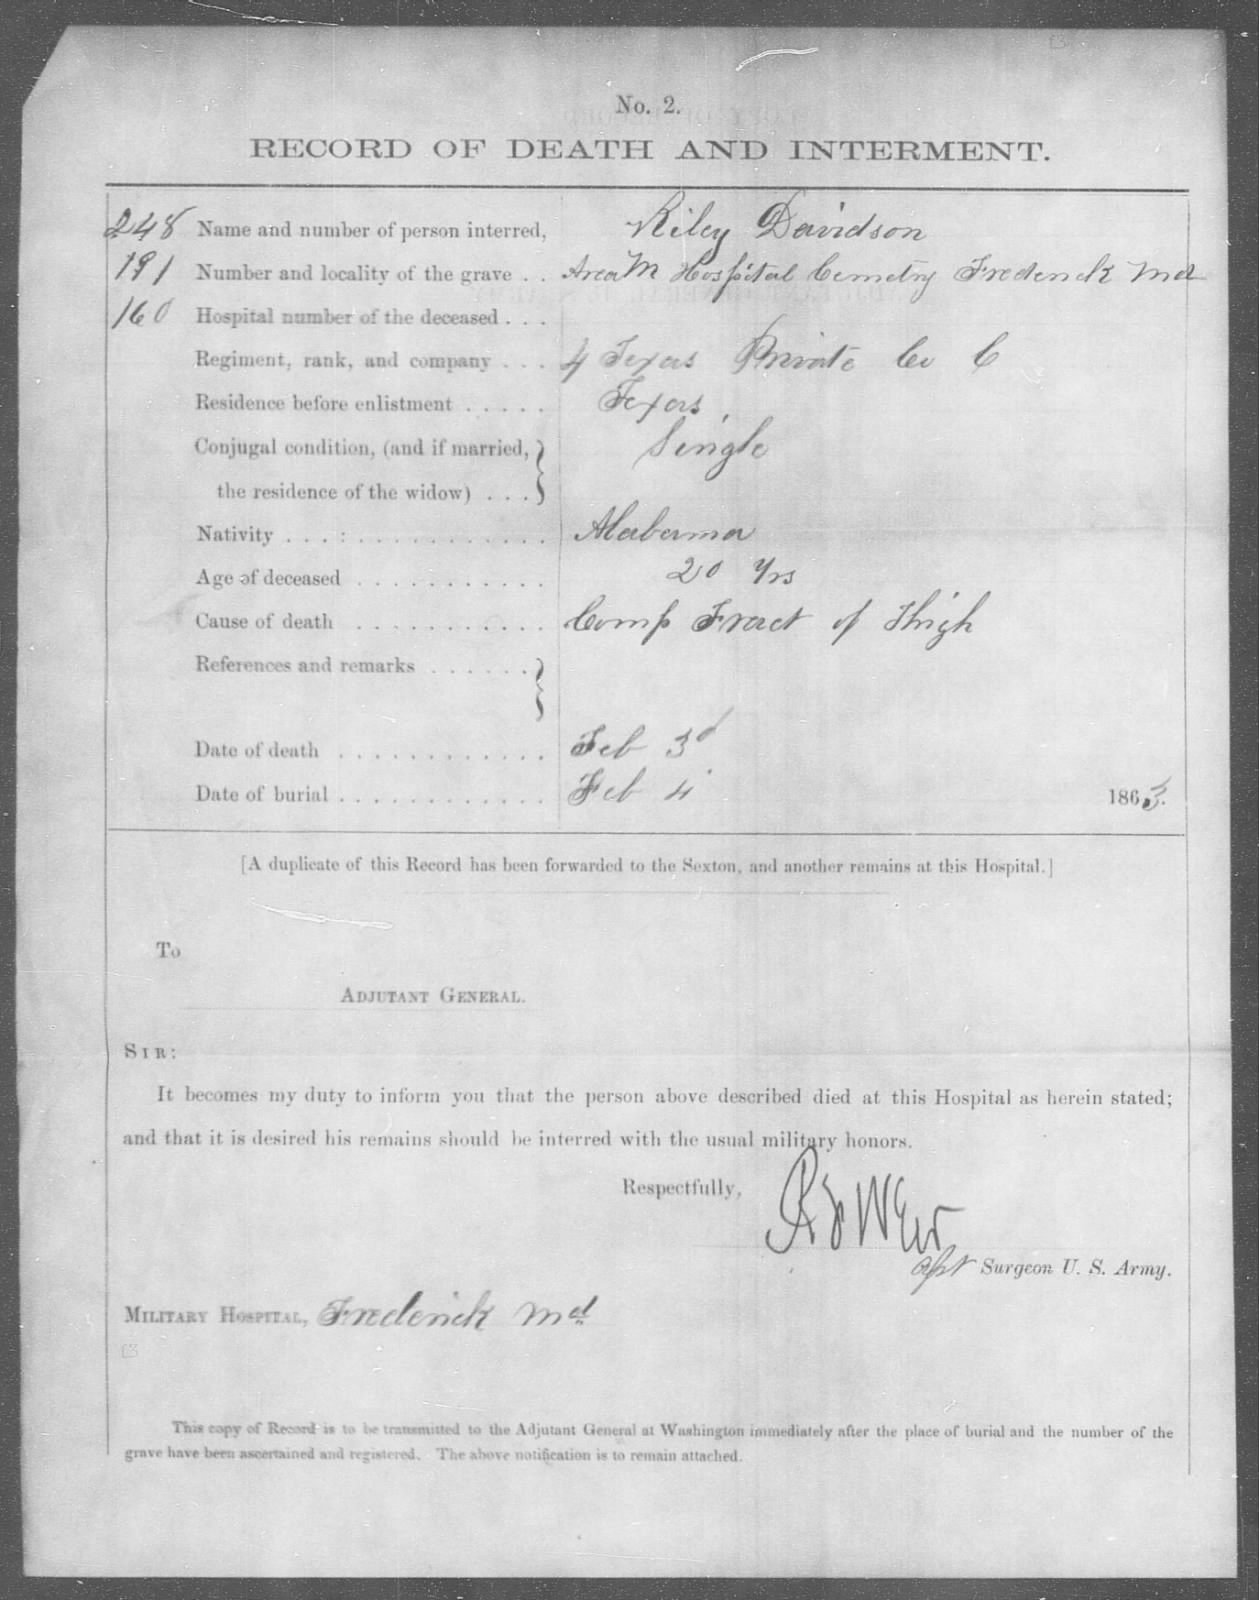 No. 2.
RECORD OF DEATH AND INTERMENT.
248 Name and number of person interred, Riley Davidson
191 Number and locality of the grave . . Area M Hospital Cemetry Frederick Md
160 Hospital number of the deceased . . .
Regiment, rank, and company . . . 4 Texas Private Co C
Residence before enlistment . . . . . Texas
Conjugal condition, (and if married, Single
the residence of the widow) . . .
Nativity . . . : . . . . . . . . . . . . Alabama
Age of deceased . . . . . . . . . . . 20 Yrs
Cause of death . . . . . . . . . . . Comp Fract of Thigh
References and remarks . . . . . . .
Date of death . . . . . . . . . . . . Feb 3d
Date of burial . . . . . . . . . . . . Feb 4 1863.
[A duplicate of this Record has been forwarded to the Sexton, and another remains at this Hospital.]
To
ADJUTANT GENERAL.
SIR:
It becomes my duty to inform you that the person above described died at this Hospital as herein stated;
and that it is desired his remains should be interred with the usual military honors.
Respectfully,
R F Weir
Asst Surgeon U. S. Army.
MILITARY HOSPITAL, Frederick Md
This copy of Record is to be transmitted to the Adjutant General at Washington immediately after the place of burial and the number of the
grave have been ascertained and registered. The above notification is to remain attached.